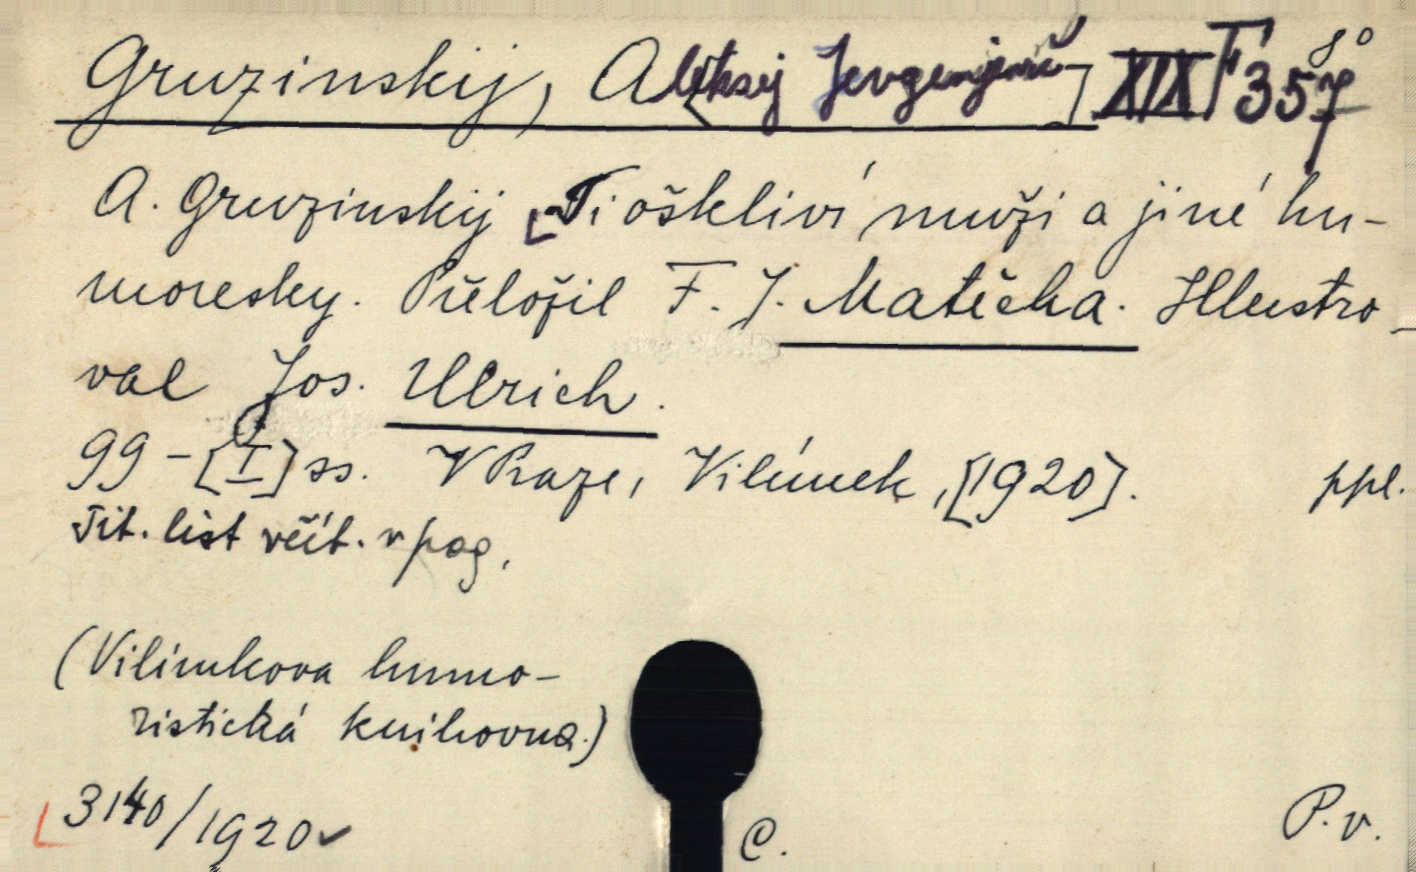 Gruzinskij, A[leksej Jevgenijevič] XIX F 357 8°
A. Gruzinskij [Ti oškliví muži a jiné hu-
moresky. Přeložil F. J. Matěčka. Illustro-
val Jos. Ulrich.
99-[I] ss. V Praze, Vilímek, [1920]. ppl.
Tit. list včít. v pag.
(Vilímkova humo-
ristická knihovna.)
3140/1920 C. P. v.